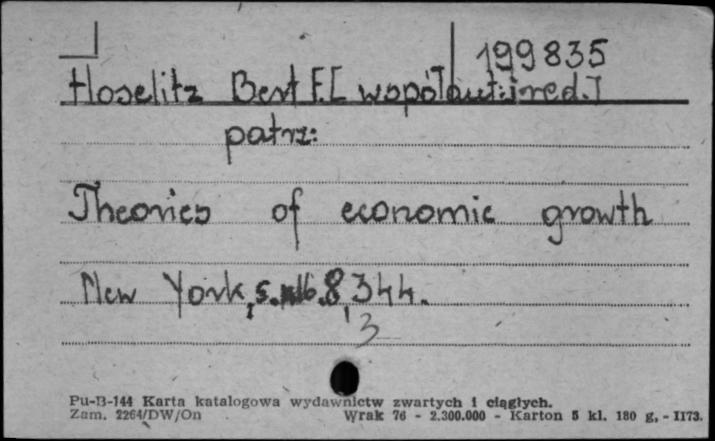 199835
Hoselitz Bert F. [współaut. i red.]
patrz:
Theories of economic growth
New York, s. 8, 344.
3
Pu-B-144 Karta katalogowa wydawnictw zwartych i ciągłych.
Zam. 2264/DW/On Wrak 76 - 2.300.000 - Karton 5 kl. 180 g. - II73.